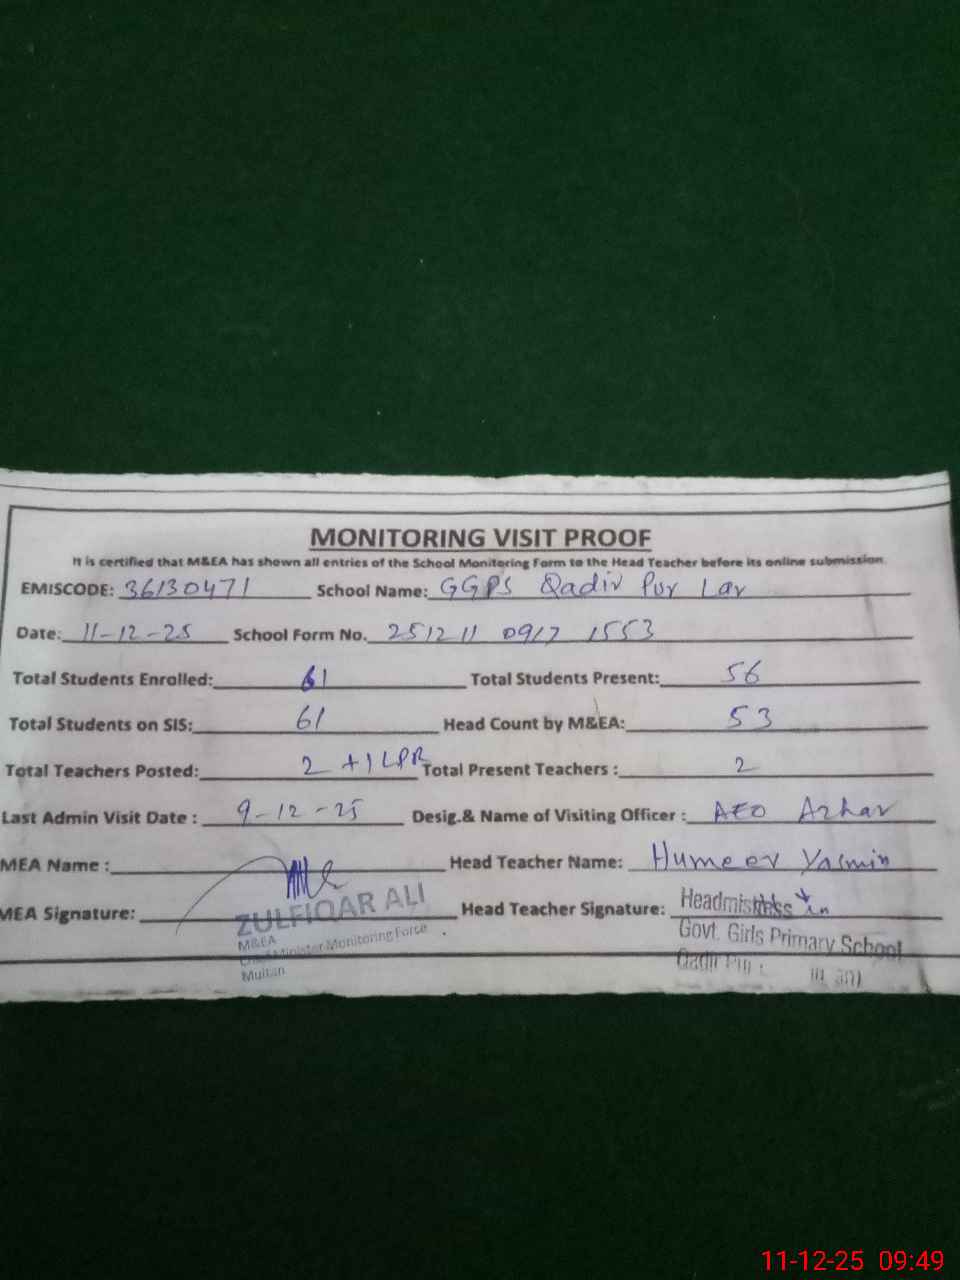 MONITORING VISIT PROOF
It is certified that M&EA has shown all entries of the School Monitoring Form to the Head Teacher before its online submission.
EMISCODE: 36130471 School Name: GGPS Qadir Pur Lar
Date: 11-12-25 School Form No. 251211 0917 1553
Total Students Enrolled: 61 Total Students Present: 56
Total Students on SIS: 61 Head Count by M&EA: 53
Total Teachers Posted: 2 +1 LPR Total Present Teachers : 2
Last Admin Visit Date : 9-12-25 Desig.& Name of Visiting Officer : AEO Azhar
MEA Name : Head Teacher Name: Humeer Yasmin
MEA Signature: Head Teacher Signature:
ZULFIQAR ALI
M&EA
Chief Minister Monitoring Force
Multan
Headmistress
Govt. Girls Primary School
Qadir Pur
11-12-25 09:49